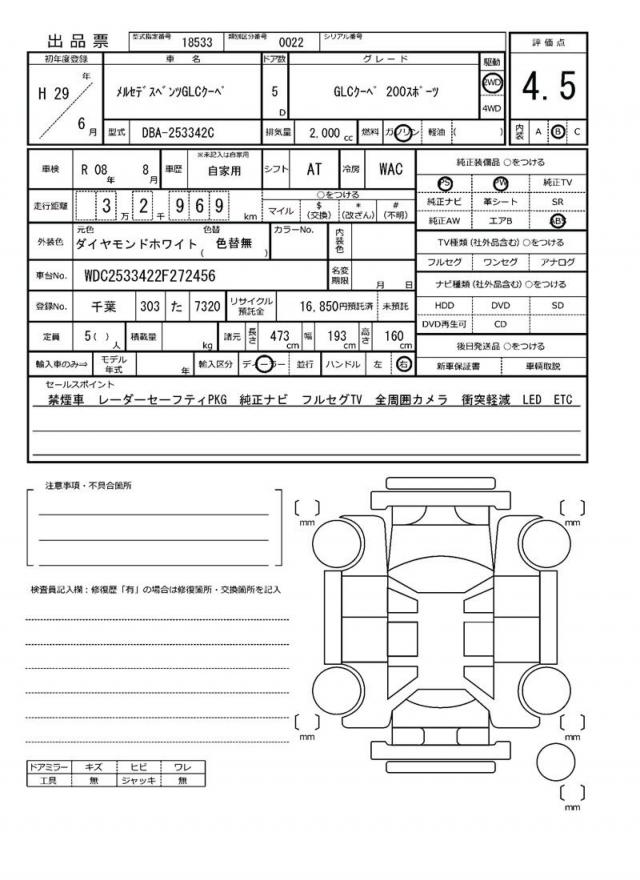 出品票 型式指定番号 18533 類別区分番号 0022 シリアル番号
初年度登録 車名 ドア数 グレード 駆動 評価点
H 29 年 6 月 メルセデスベンツGLCクーペ 5 D GLCクーペ 200スポーツ 2WD 4WD 4.5
型式 DBA-253342C 排気量 2,000 cc 燃料 ガソリン 軽油 ( ) 内装 A B C
車検 R 08 年 8 月 車歴 ※未記入は自家用 自家用 シフト AT 冷房 WAC 純正装備品 ○をつける
PS PW 純正TV
走行距離 3 万 2 千 9 6 9 km ○をつける マイル $ (交換) * (改ざん) # (不明) 純正ナビ 革シート SR
純正AW エアB ABS
外装色 元色 ダイヤモンドホワイト 色替 ( 色替無 ) カラーNo. 内装色 TV種類 (社外品含む) ○をつける
フルセグ ワンセグ アナログ
車台No. WDC2533422F272456 名変期限 月 日 ナビ種類 (社外品含む) ○をつける
登録No. 千葉 303 た 7320 リサイクル預託金 16,850円預託済 未預託 HDD DVD SD
DVD再生可 CD
定員 5 ( ) 人 積載量 kg 諸元 長さ 473 cm 幅 193 cm 高さ 160 cm 後日発送品 ○をつける
輸入車のみ⇒ モデル年式 年 輸入区分 ディーラー 並行 ハンドル 左 右 新車保証書 車輌取説
セールスポイント
禁煙車 レーダーセーフティPKG 純正ナビ フルセグTV 全周囲カメラ 衝突軽減 LED ETC
注意事項・不具合箇所
mm mm
検査員記入欄：修復歴「有」の場合は修復箇所・交換箇所を記入
mm mm
ドアミラー キズ ヒビ ワレ
工具 無 ジャッキ 無
mm